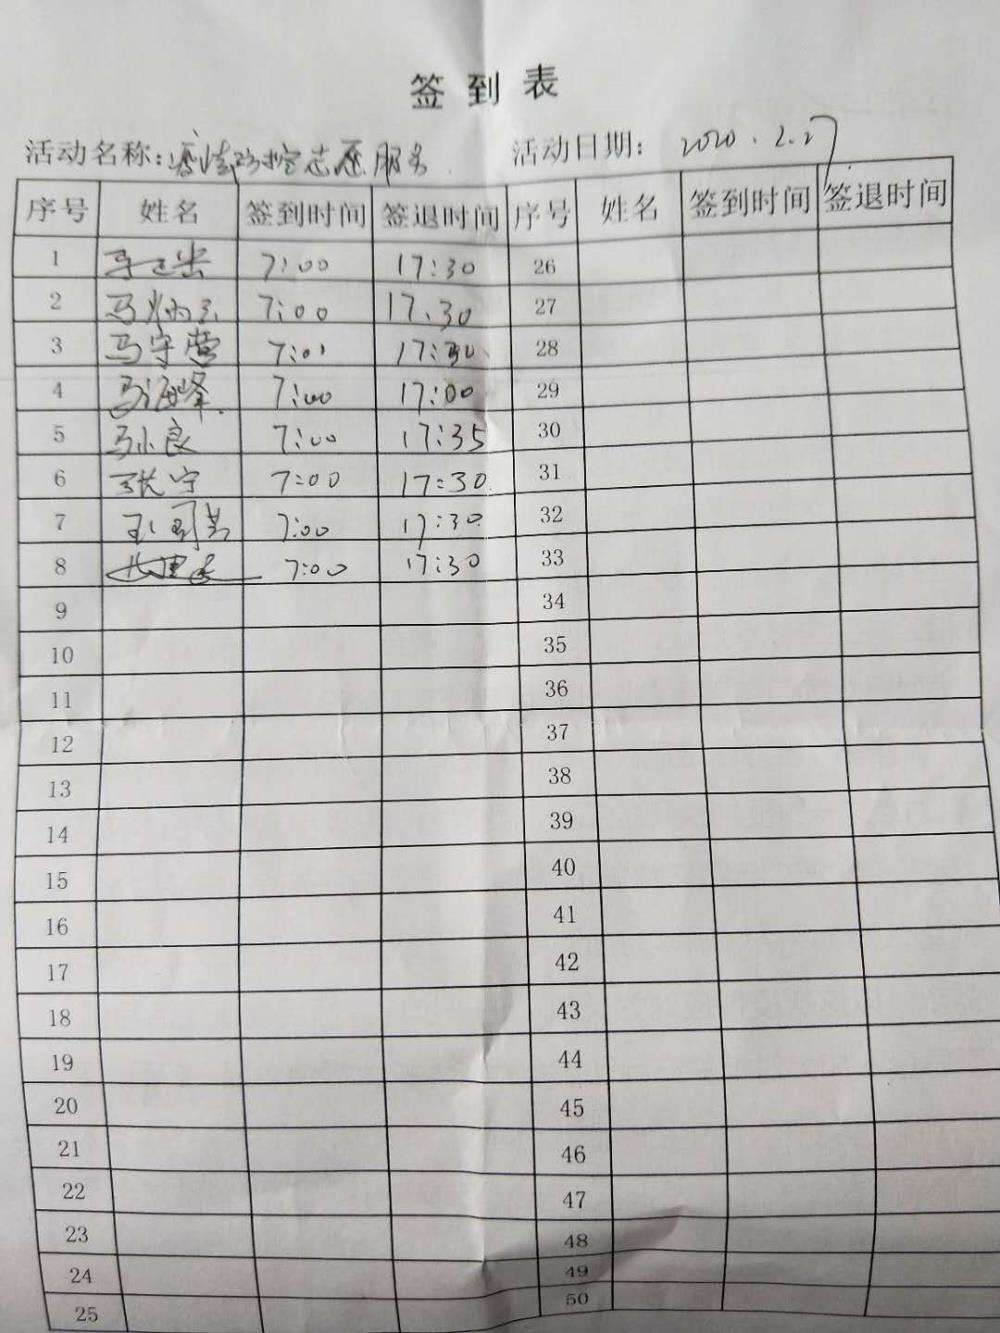 签到表
活动名称：疫情防控志愿服务 活动日期：2020.2.27
序号 姓名 签到时间 签退时间 序号 姓名 签到时间 签退时间
1 7:00 17:30 26
2 马炳 7:00 17:30 27
3 马守营 7:01 17:30 28
4 马海峰 7:00 17:00 29
5 马小良 7:00 17:35 30
6 张宁 7:00 17:30 31
7 7:00 17:30 32
8 7:00 17:30 33
9 34
10 35
11 36
12 37
13 38
14 39
15 40
16 41
17 42
18 43
19 44
20 45
21 46
22 47
23 48
24 49
25 50